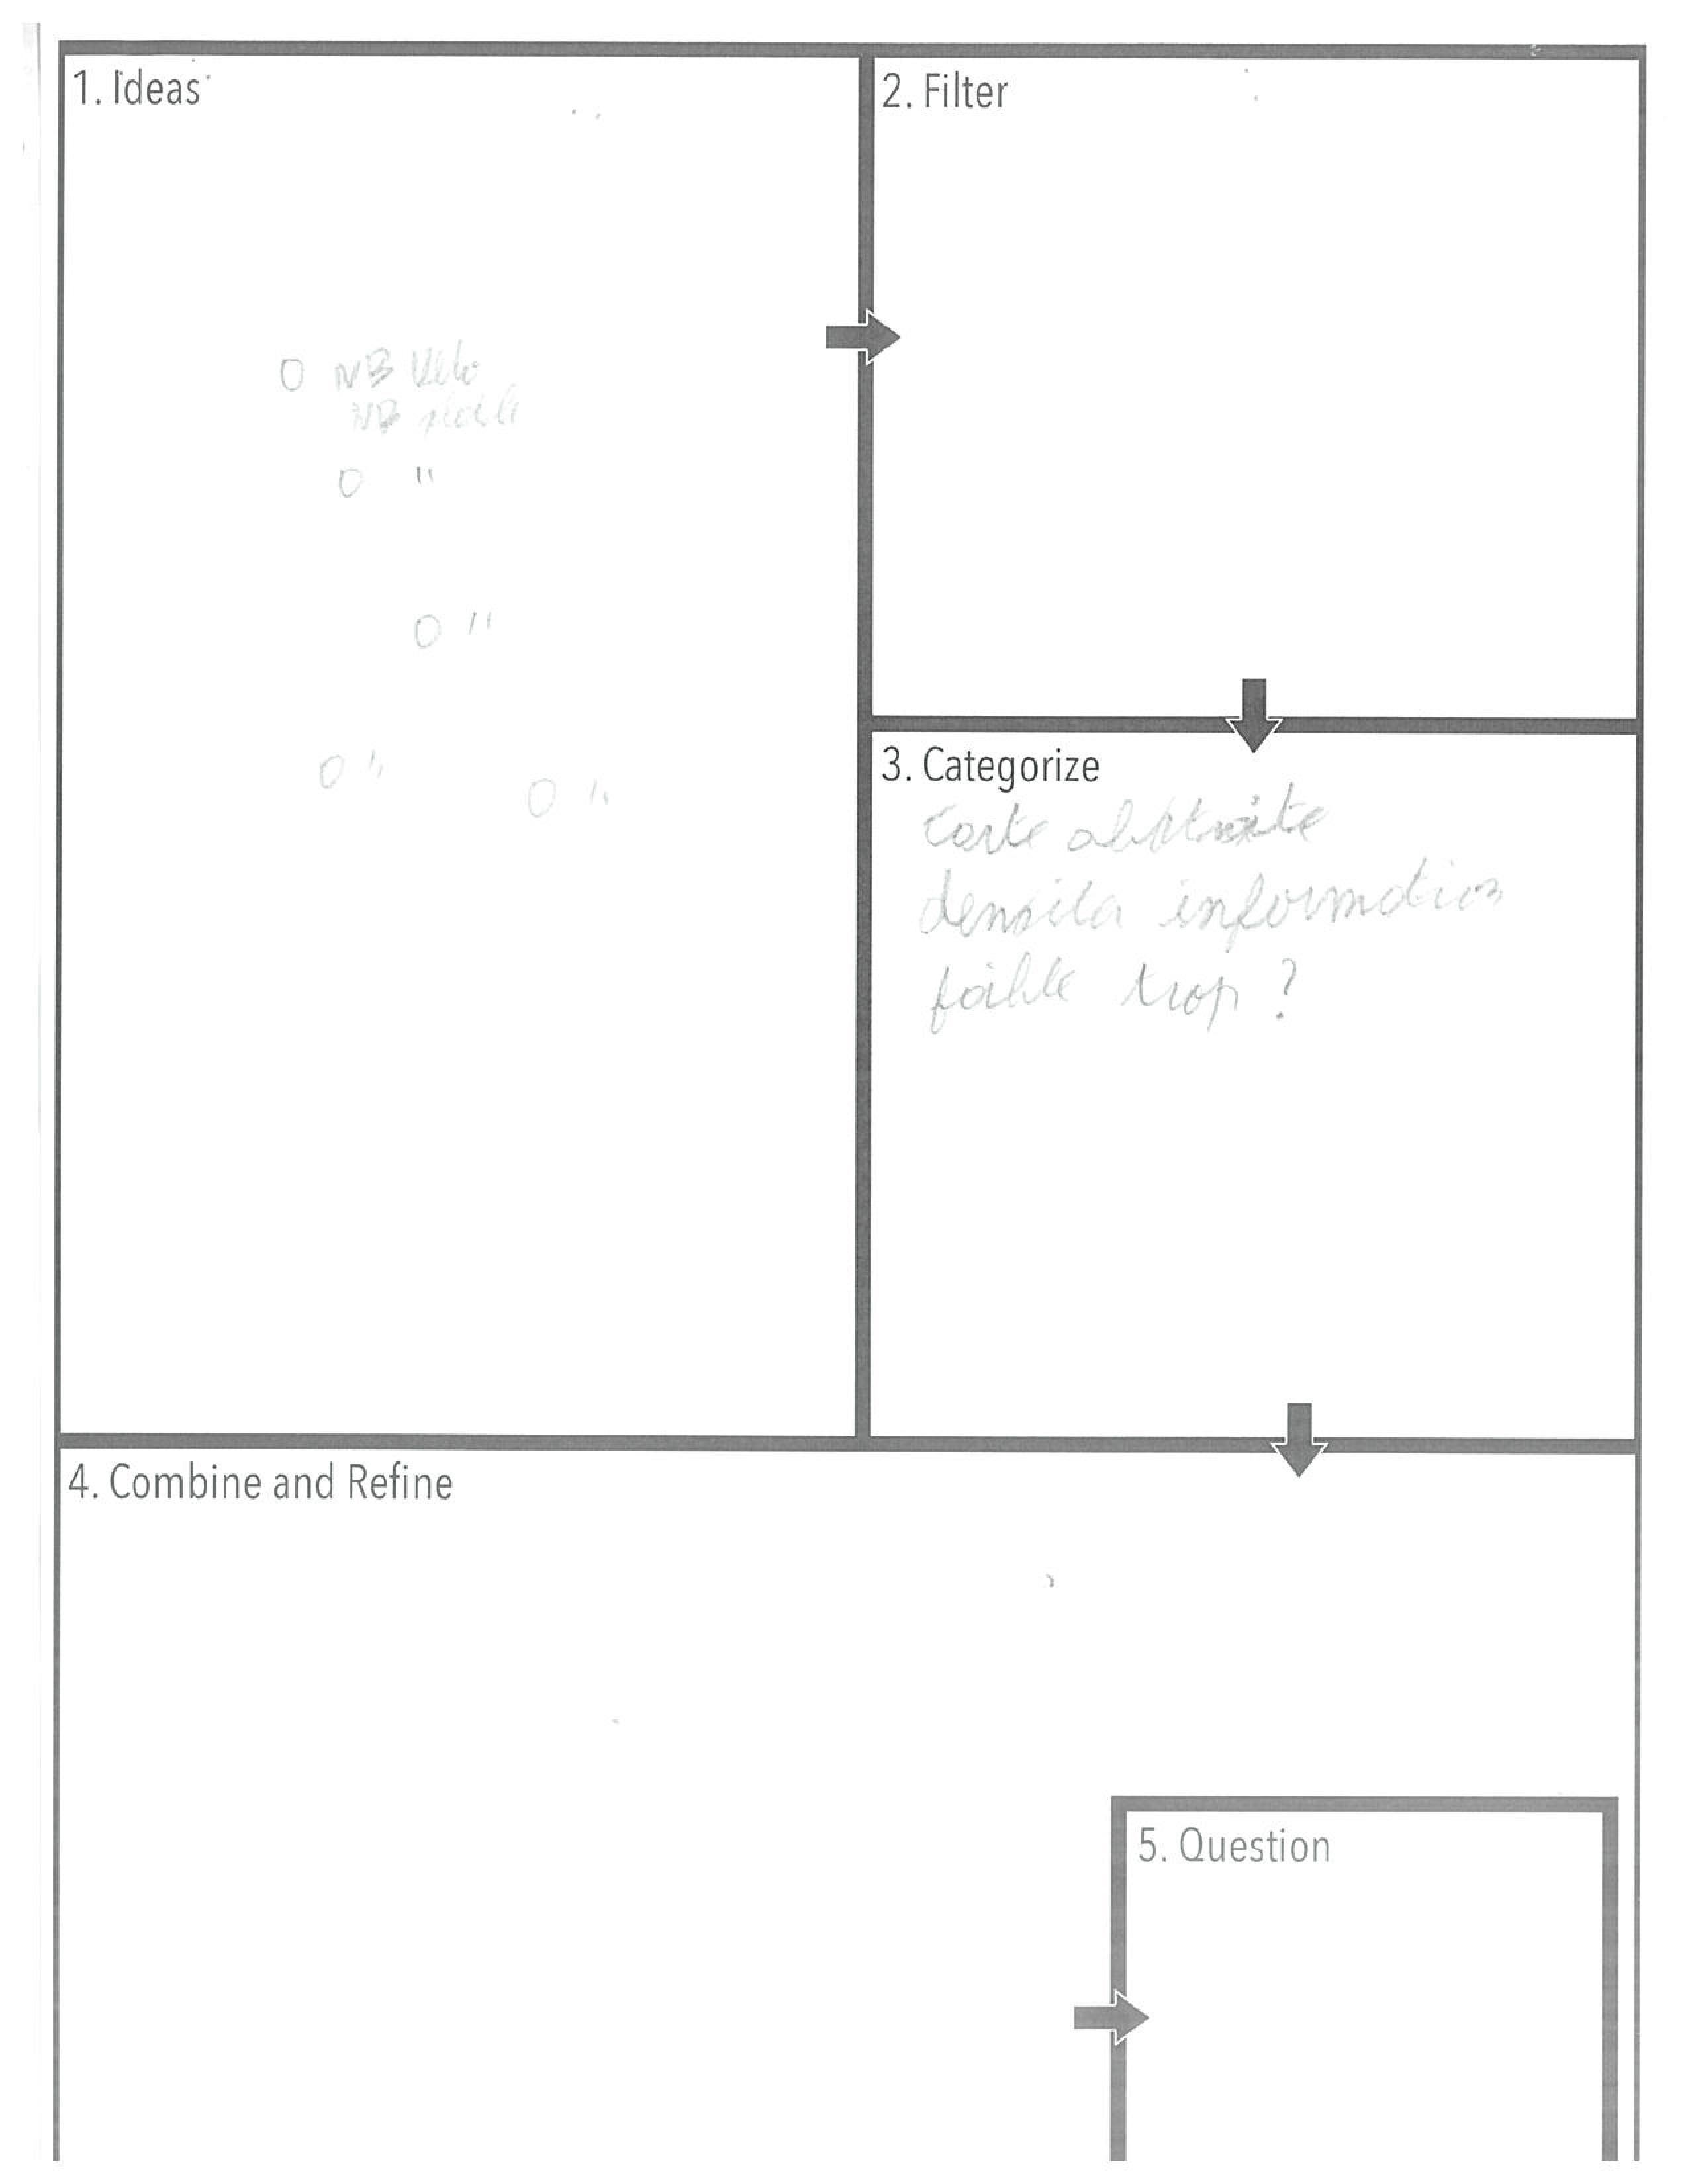 1. Ideas
O NB Vélo
NB
O "
O "
O "
O "
2. Filter
3. Categorize
Carte abstraite
densita information
faible trop ?
4. Combine and Refine
5. Question